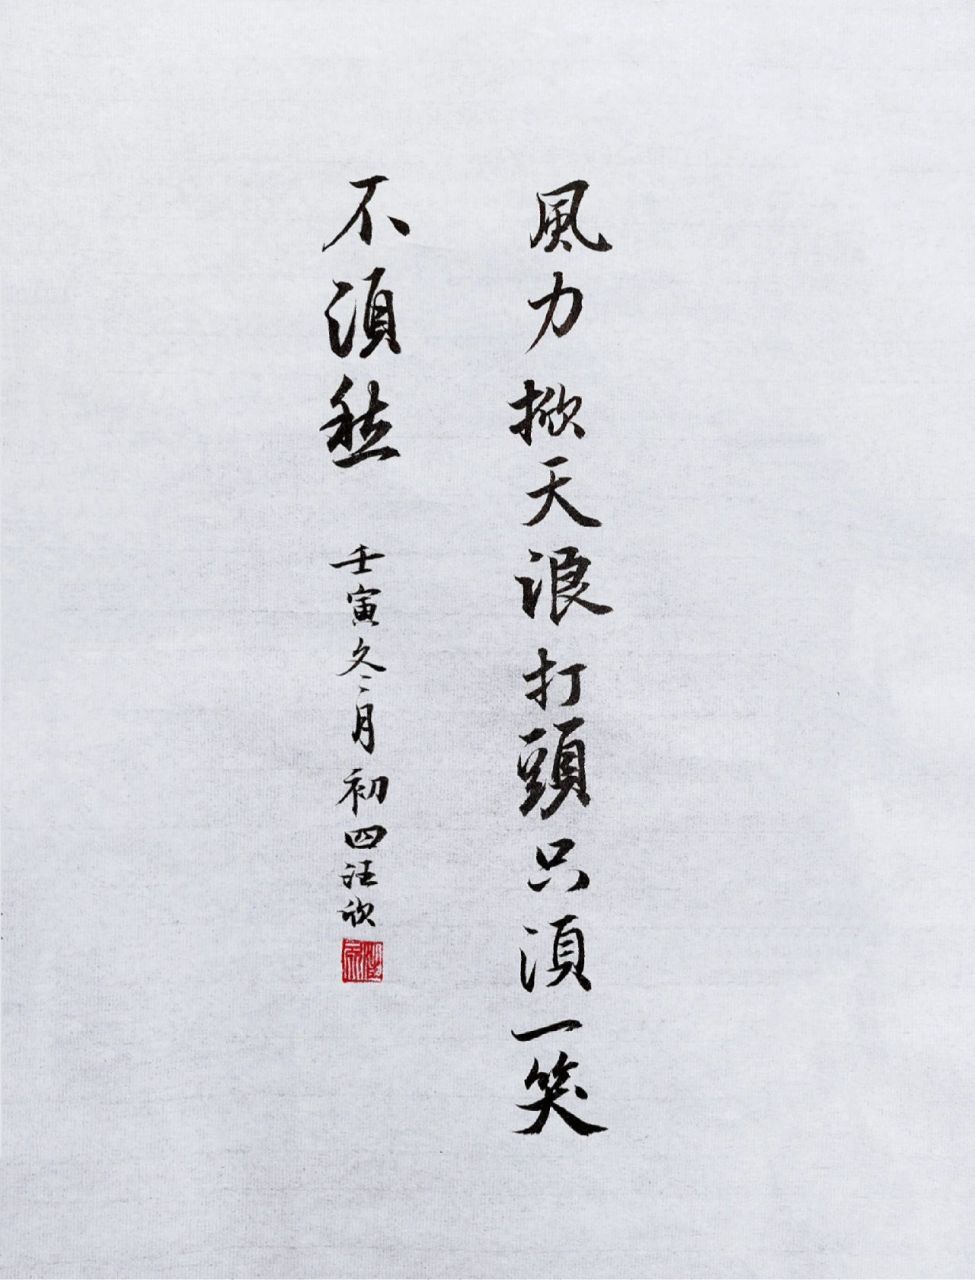 風力掀天浪打頭只須一笑
不須愁 壬寅冬月初四汪欣